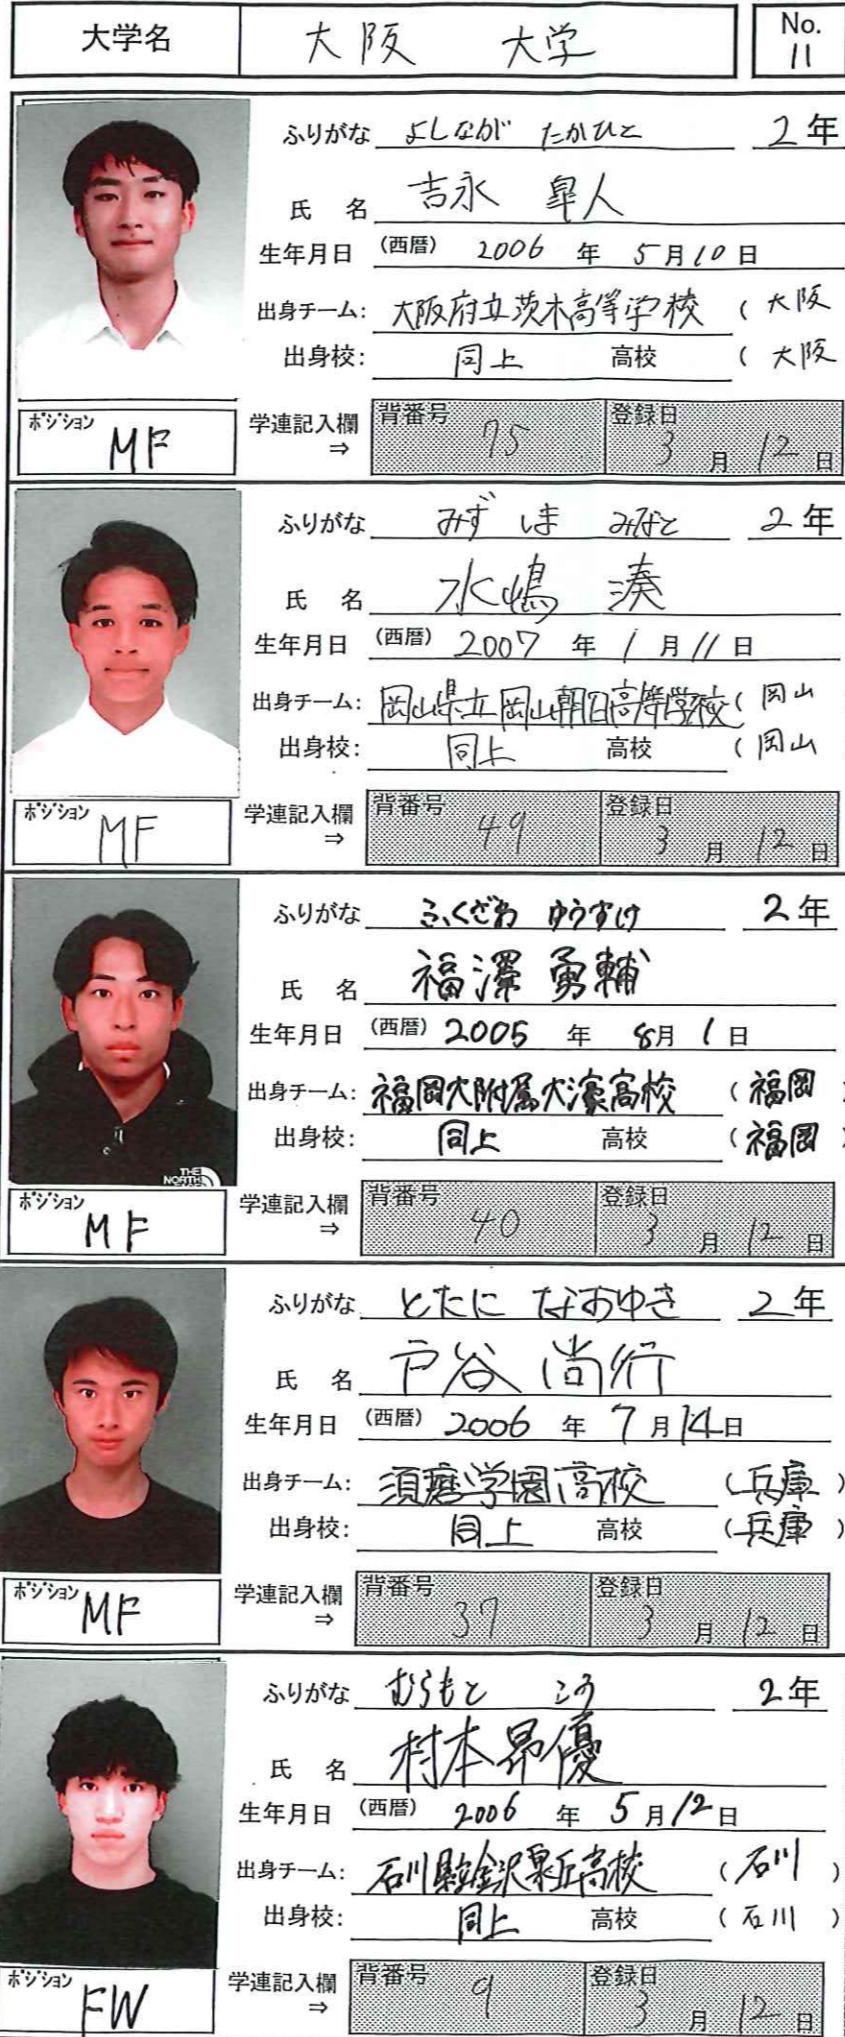 大学名 大阪 大学 No. 11
ふりがな よしなが たかひと 2年
氏 名 吉永 皐人
生年月日 (西暦) 2006 年 5月10日
出身チーム: 大阪府立茨木高等学校 (大阪
出身校: 同上 高校 (大阪
ポジション MF 学連記入欄 ⇒ 背番号 75 登録日 3月12日
ふりがな みずしま みなと 2年
氏 名 水嶋 湊
生年月日 (西暦) 2007 年 1月11日
出身チーム: 岡山県立岡山朝日高等学校 (岡山
出身校: 同上 高校 (岡山
ポジション MF 学連記入欄 ⇒ 背番号 49 登録日 3月12日
ふりがな ふくざわ ゆうすけ 2年
氏 名 福澤 勇輔
生年月日 (西暦) 2005 年 8月1日
出身チーム: 福岡大附属大濠高校 (福岡)
出身校: 同上 高校 (福岡)
THE NORTH
ポジション MF 学連記入欄 ⇒ 背番号 40 登録日 3月12日
ふりがな とたに なおゆき 2年
氏 名 戸谷 尚行
生年月日 (西暦) 2006 年 7月14日
出身チーム: 須磨学園高校 (兵庫)
出身校: 同上 高校 (兵庫)
ポジション MF 学連記入欄 ⇒ 背番号 37 登録日 3月12日
ふりがな むらもと こう 2年
氏 名 村本 昂優
生年月日 (西暦) 2006 年 5月12日
出身チーム: 石川県立金沢泉丘高校 (石川)
出身校: 同上 高校 (石川)
ポジション FW 学連記入欄 ⇒ 背番号 9 登録日 3月12日